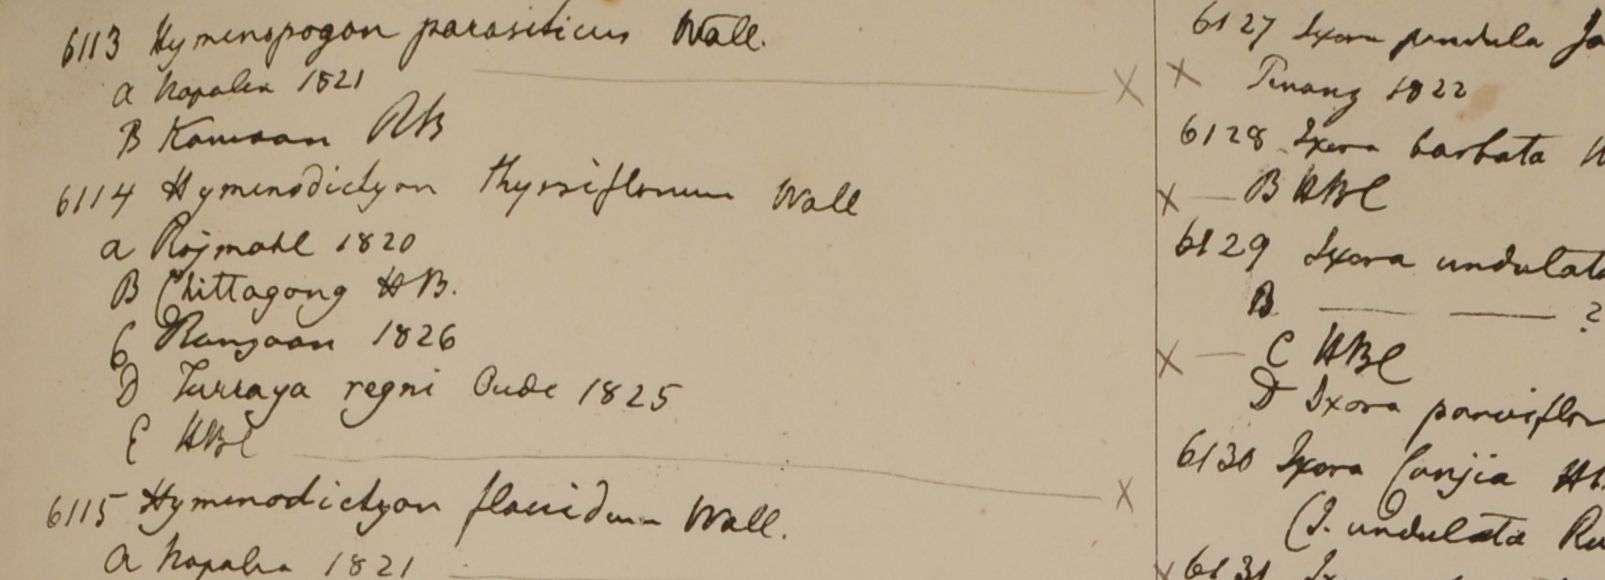 6113 Hymenopogon parasiticus Wall.
a Napalia 1821
B Kamaon RB
6114 Hymenodictyon thyrsiflorum Wall
a Rajmahl 1820
B Chittagong HB.
C Rangoon 1826
D Turraya regni Oude 1825
E HBC
6115 Hymenodictyon flaccidum Wall.
a Napalia 1821
6127 Ixora pendula Ja
X Penang 1822
6128 Ixora barbata
X B HBC
6129 Ixora undulata
B ?
X C HBC
D Ixora parviflor
6130 Ixora Conjia Hb.
(I. undulata Ro
X 6131